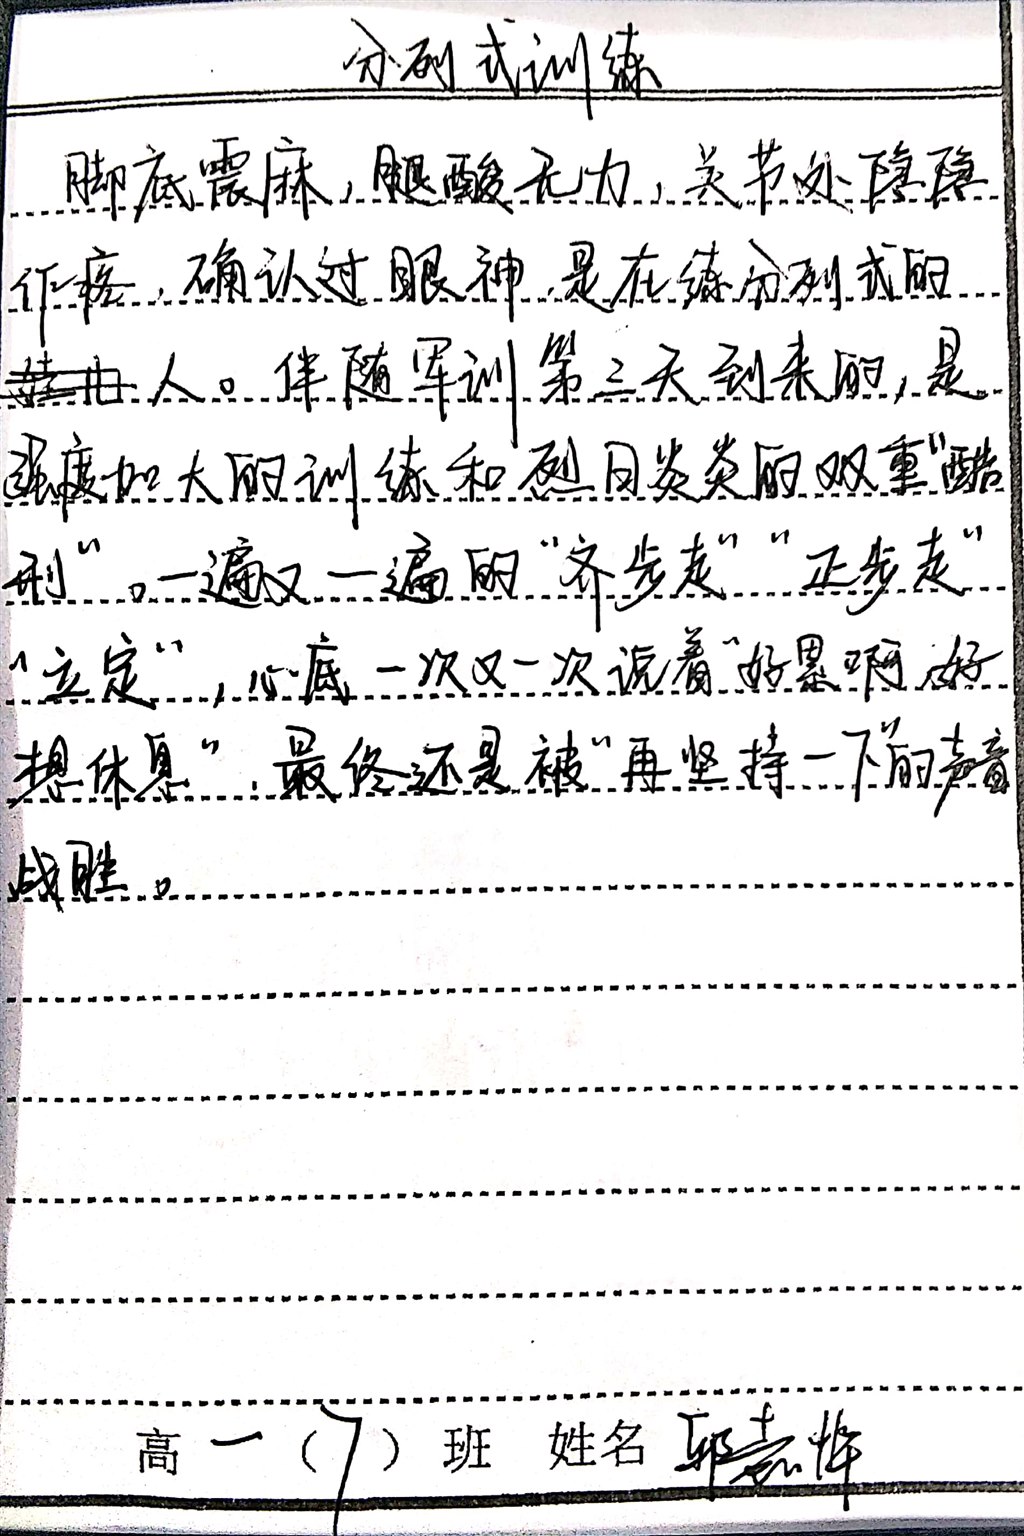 分列式训练
脚底震麻，腿酸无力，关节处隐隐
作疼，确认过眼神，是在练分列式的
人。伴随军训第三天到来的，是
强度加大的训练和烈日炎炎的双重“酷
刑”。一遍又一遍的“齐步走”“正步走”
“立定”，心底一次又一次说着“好累啊，好
想休息”，最终还是被“再坚持一下”的声音
战胜。
高一（7）班 姓名 郭嘉